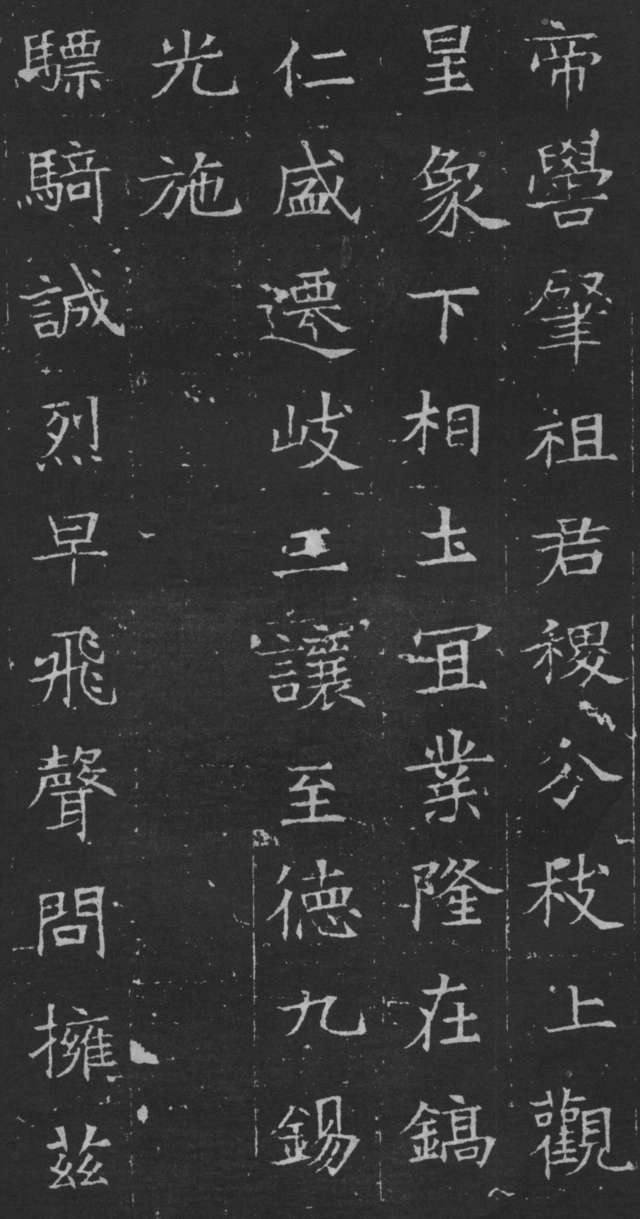 帝嚳肇祖若稷分枝上觀
星象下相土宜業隆在鎬
仁盛遷岐三讓至德九錫
光施
驃騎誠烈早飛聲問擁茲